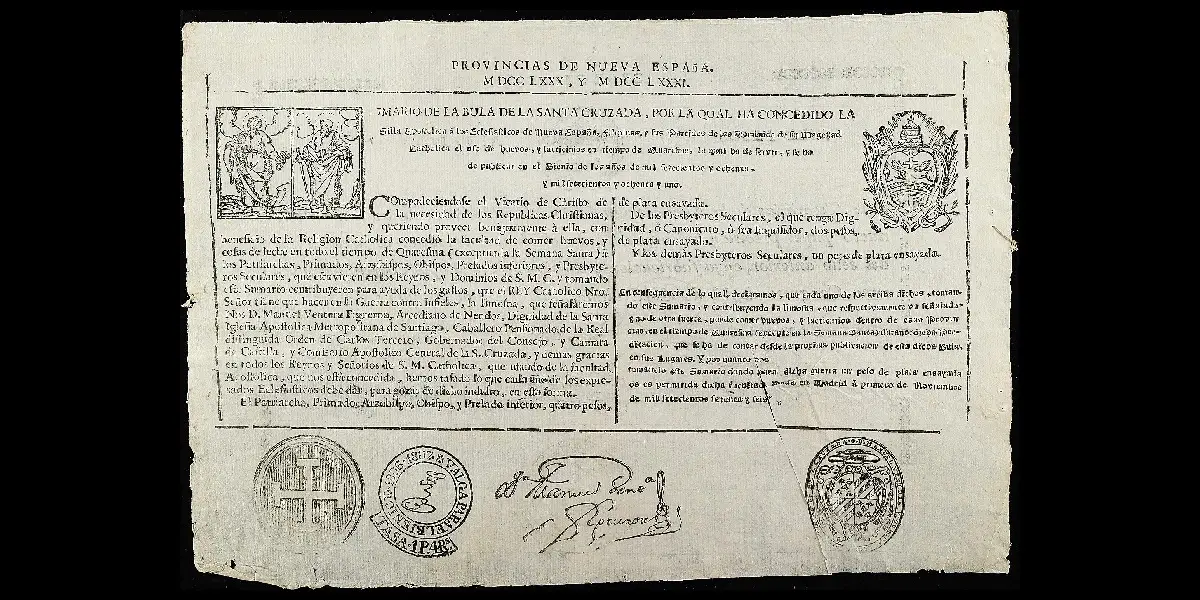 PROVINCIAS DE NUEVA ESPAÑA.
M DCC LXXX, Y M DCC LXXXI.
UMARIO DE LA BULA DE LA SANTA CRUZADA, POR LA QUAL HA CONCEDIDO LA
Silla Apostolica à los Eclesiasticos de Nueva España, Filipinas, y
Catholica el uso de huevos, y lacticinios en tiempo de Quaresma, la qual ha de servir, y se ha
de publicar en el Bienio de los años de mil setecientos y ochenta,
y mil setecientos y ochenta y uno.
Compadeciendose el Vicario de Christo de
la necesidad de las Republicas Christianas,
y queriendo proveer benignamente à ella, con
beneficio de la Religion Catholica concedió la facultad de comer huevos, y
cosas de leche en todo el tiempo de Quaresma (excepto en la Semana Santa) à
los Patriarchas, Primados, Arzobispos, Obispos, Prelados inferiores, y Presbyte-
ros Seculares, que estuvieren en los Reynos, y Dominios de S. M. C. y tomando
este Sumario contribuyeren para ayuda de los gastos, que el REY Catholico Nro.
Señor tiene que hacer en la Guerra contra infieles, la limosna, que señalaremos
Nos D. Manuel Ventura Figueroa, Arcediano de Nendos, Dignidad de la Santa
Iglesia Apostolica Metropolitana de Santiago, Caballero Pensionado de la Real
distinguida Orden de Carlos Tercero, Gobernador del Consejo, y Camara
de Castilla, y Comisario Apostolico General de la S. Cruzada, y demas gracias
en todos los Reynos y Señorios de S. M. Catholica, que usando de la facultad
Apostolica, que nos está concedida, hemos tasado lo que cada uno de los expre-
sados Eclesiasticos debe dar, para gozar de dicho indulto, en esta forma.
El Patriarcha, Primado, Arzobispo, Obispo, y Prelado inferior, quatro pesos,
de plata ensayada.
De los Presbyteros Seculares, el que tenga Dig-
nidad, ò Canonicato, dos pesos,
de plata ensayada.
Y los demás Presbyteros Seculares, un peso de plata ensayada.
En consequencia de lo qual, declaramos, que cada uno de los arriba dichos, toman-
do este Sumario, y contribuyendo la limosna, que respectivamente va señalada,
y no de otra suerte, puede comer huevos, y lacticinios dentro de esas Provin-
cias, en el tiempo de Quaresma (excepto en la Semana Santa)
que se ha de contar desde la propria publicacion de esta dicha Bula,
en sus Lugares. Y por quanto vos
tomasteis este Sumario dando para dicha guerra un peso de plata ensayada
os es permitida dicha facultad. Dada en Madrid à primero de Noviembre
de mil setecientos setenta y seis.
VALGA PARA EL BIENIO
TASA 1P 4R